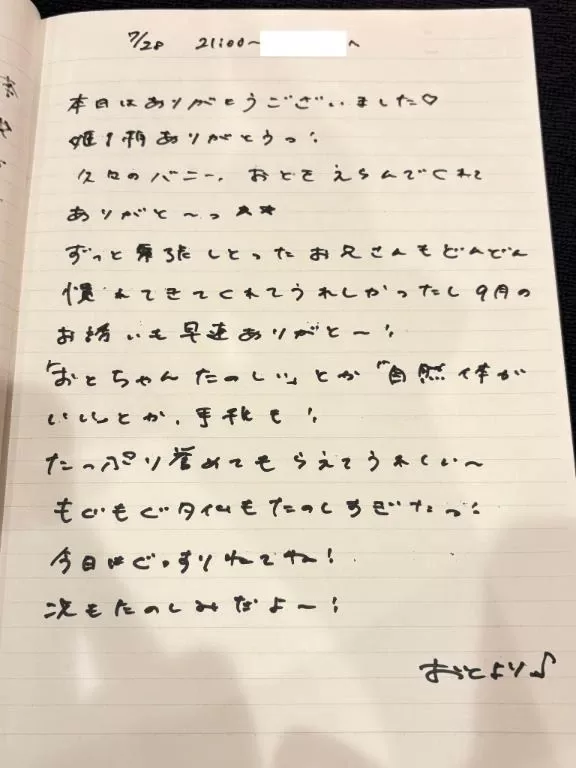 7/28 21:00〜 へ
本日はありがとうございました♡
姫予約ありがとうっ!
久々のバニー、おとをえらんでくれて
ありがと〜っ★★
ずっと緊張しとったお兄さんもどんどん
慣れてきてくれてうれしかったし9月の
お誘いも早速ありがと〜!
「おとちゃんたのしい」とか「自然体が
いい」とか、手紙も!
たっぷり誉めてもらえてうれしい〜
もぐもぐタイムもたのしすぎたっ!
今日はぐっすりねてね!
次もたのしみだよ〜!
おとより♪